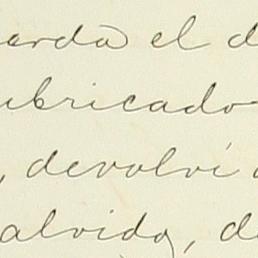 arda el d
ubricado
, devolví
alvido, de